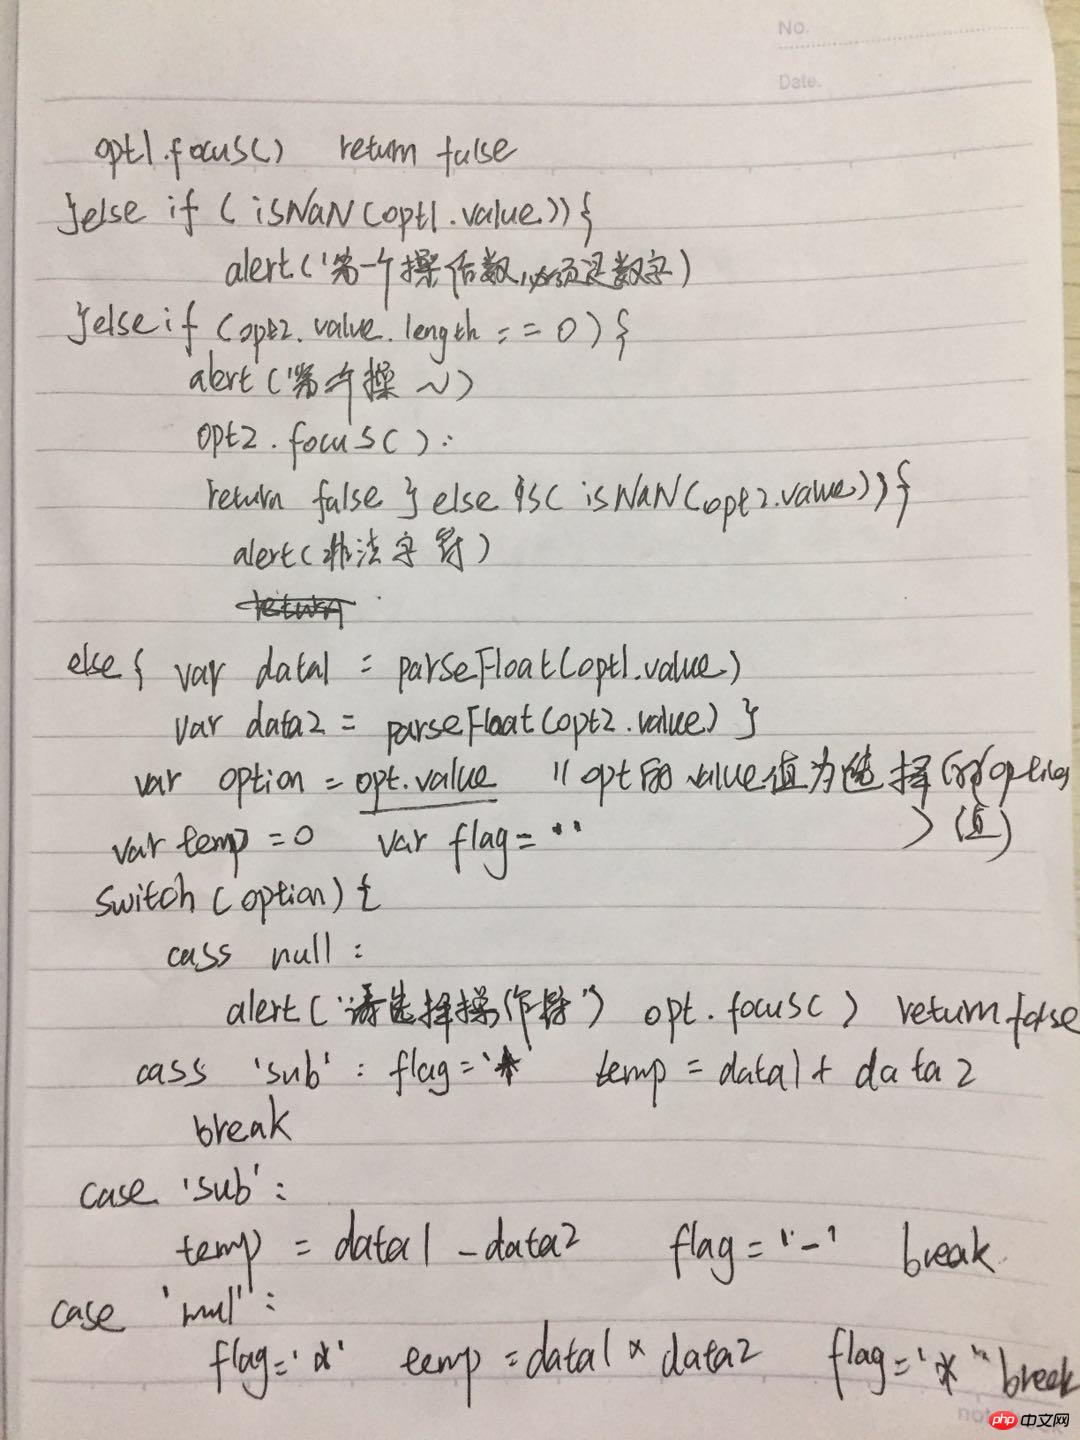 No.
Date.
opt1.focus() return false
}else if (isNaN(opt1.value)){
alert('第一个操作数,必须是数字)
}else if (opt2.value.length === 0){
alert('第二个操 ~)
opt2.focus():
return false } else if( isNaN(opt2.value)){
alert(非法字符)
return
else{ var data1 = parseFloat(opt1.value)
var data2 = parseFloat(opt2.value) }
var option = opt.value //opt的value值为选择的option
值)
var temp=0 var flag=''
switch (option) {
cass null:
alert("请选择操作符") opt.focus() return false
cass 'sub': flag='* temp = data1 + data2
break
case 'sub':
temp = data1 - data2 flag='-' break
case 'mul':
flag='*' temp = data1 * data2 flag='*" break
php 中文网